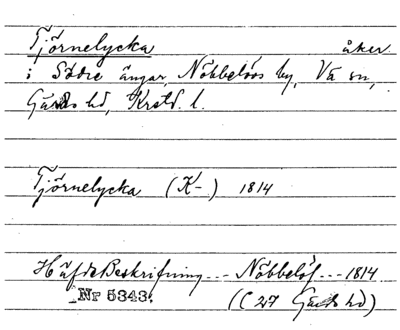 Tjörnelycka åker
i Södre ängar, Nöbbelövs by, Vä sn,
Gärds hd, Krstd. l.
Tjörnelycka (K-) 1814
HäfdeBeskrifning --- Nöbbelöf --- 1814
Nr 5343. (C 27 Gärds hd)